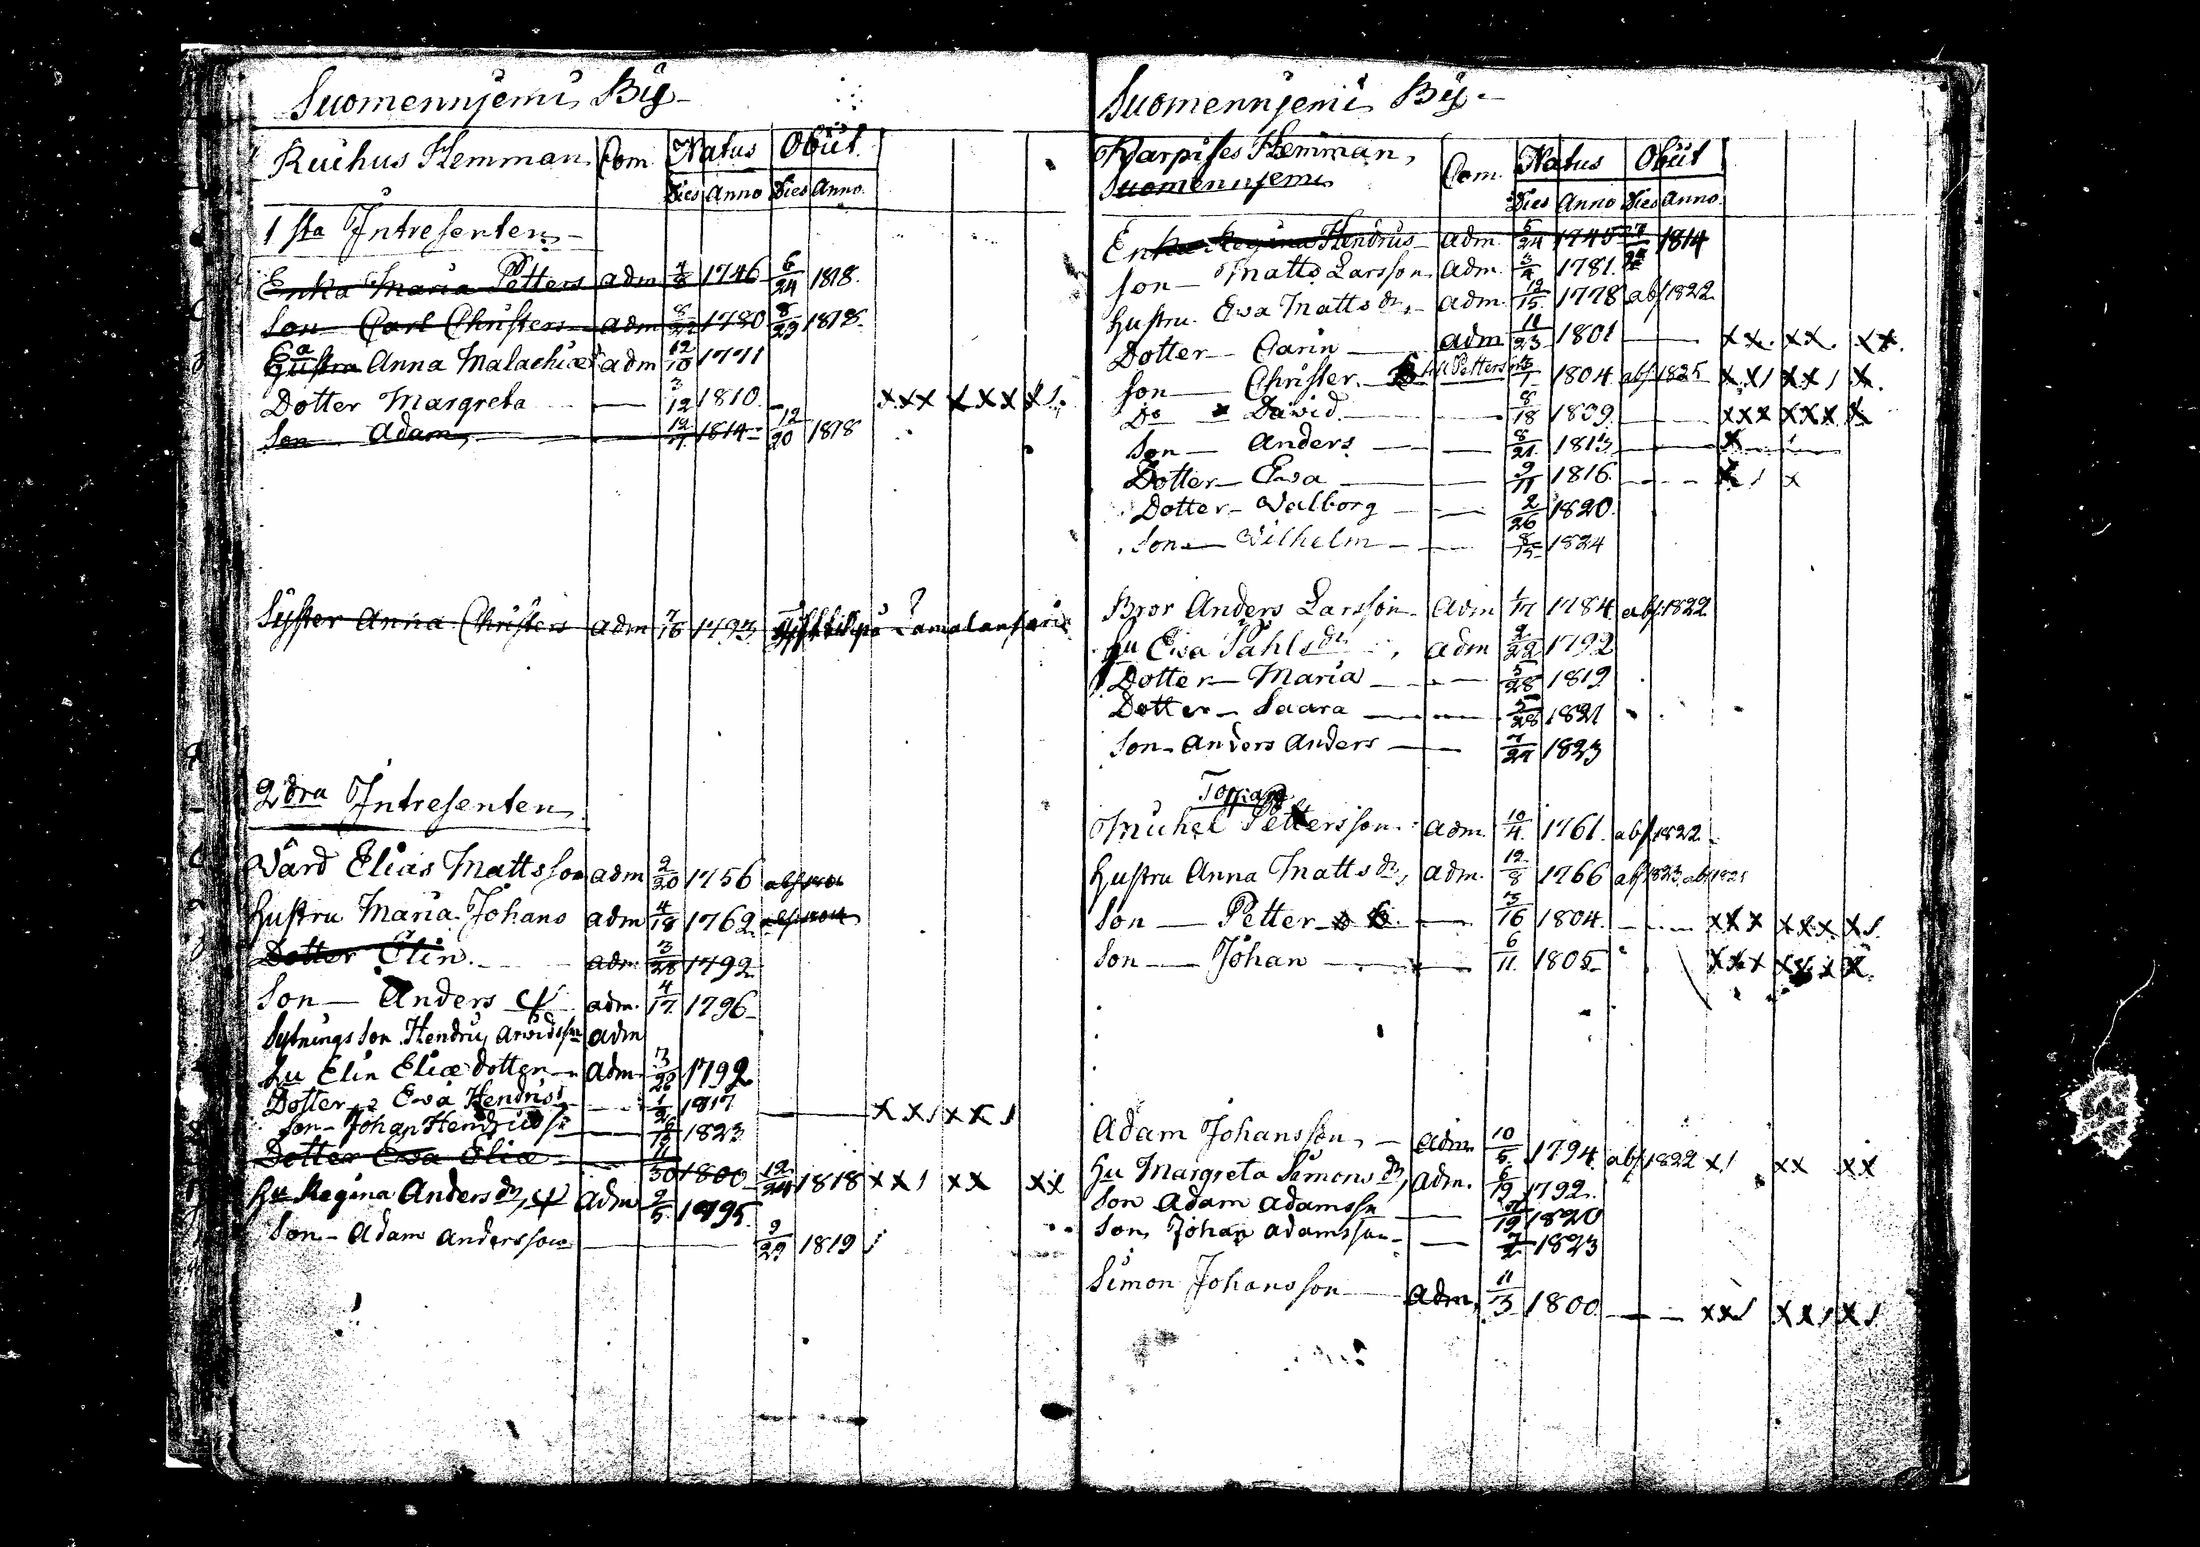 Suomennjemi By
Ruihus Hemman, Com Natus Obiit
Dies Anno Dies Anno
1 sta Intresenten
Enka Maria Petters adm 4/8 1746 6/24 1818
Son Carl Christers adm 1780 8/23 1818
Ea Hustru Anna Malachiæ adm 12/10 1771
Dotter Margreta 3/12 1810 xxx xxx x/.
Son Adam 12/7 1814 12/20 1818
Syster Anna Christers adm 7/16 1793
2 dra Intresenten
Värd Elias Mattsson adm 2/20 1756
Hustru Maria Johans adm 4/18 1762
Dotter Elin adm 3/28 1792
Son Anders adm. 4/17 1796
Sytnings Son Hendric Arvidsson adm
Hu Elin Eliæ dotter adm 3/28 1792
Dotter Eva Hendrics 1817 xx/ xx/
Son Johan Hendricss 1823
Dotter Eva Eliæ 11/30 1800 12/24 1818 xx/ xx xx
Hu Regina Anders dr adm 2/5 1795
Son Adam Andersson 9/29 1819
Suomennjemi By
Karpises Hemman, Com. Natus Obiit
Suomennjemi
Dies Anno Dies Anno
Enka Regina Hendrics adm. 5/24 1745 1814
Son Matts Larsson adm. 1781
Hustru Eva Matts dr adm. 12/15 1778 abs 1822
Dotter Carin adm 11/23 1801 xx. xx. xx.
Son Christer 1804 abs 1825 xx/ xx/ x.
Do David 8/18 1809 xxx xxx x
Son Anders 8/21 1813 x
Dotter Eva 9/11 1816 x / x
Dotter Walborg 2/26 1820
Son Wilhelm 8/15 1824
Bror Anders Larsson adm 1784 abs 1822
Hu Eva Påhls dr adm 9/22 1792
Dotter Maria 5/28 1819
Dotter Saara 5/28 1821
Son Anders Anders 7/29 1823
Michel Pettersson adm. 10/4 1761 abs 1822
Hustru Anna Matts dr, adm. 12/8 1766 abs 1823
Son Petter 3/16 1804 xxx xxx x/
Son Johan 6/11 1805 xxx xxx x
Adam Johansson adm. 10/5 1794 abs 1822 x/ xx xx
Hu Margreta Simons dr, adm. 6/19 1792
Son Adam Adamsson 1820
Son Johan Adamsson 1823
Simon Johansson adm, 11/3 1800 xx/ xx/ x/